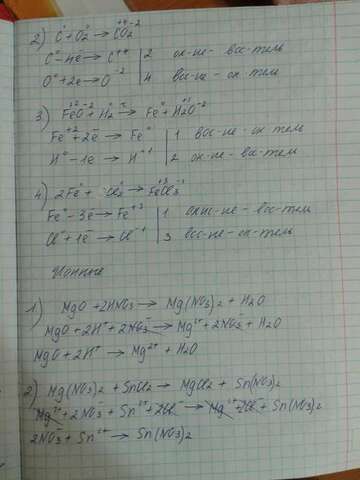 2) C⁰ + O₂⁰ → C⁺⁴O₂⁻²
C⁰ - 4e̅ → C⁺⁴ | 2 ок-ие - вос-тель
O⁰ + 2e̅ → O⁻² | 4 вос-ие - ок-тель
3) Fe⁺²O⁻² + H₂⁰ → Fe⁰ + H₂⁺¹O⁻²
Fe⁺² + 2e̅ → Fe⁰ | 1 вос-ие - ок-тель
H⁰ - 1e̅ → H⁺¹ | 2 ок-ие - вос-тель
4) 2Fe⁰ + Cl₂⁰ → Fe⁺³Cl₃⁻¹
Fe⁰ - 3e̅ → Fe⁺³ | 1 окис-ие - вос-тель
Cl⁰ + 1e̅ → Cl⁻¹ | 3 вос-ие - ок-тель
Ионные
1) MgO + 2HNO₃ → Mg(NO₃)₂ + H₂O
MgO + 2H⁺ + 2NO₃⁻ → Mg²⁺ + 2NO₃⁻ + H₂O
MgO + 2H⁺ → Mg²⁺ + H₂O
2) Mg(NO₃)₂ + SnCl₂ → MgCl₂ + Sn(NO₃)₂
Mg²⁺ + 2NO₃⁻ + Sn²⁺ + 2Cl⁻ → Mg²⁺ + 2Cl⁻ + Sn(NO₃)₂
2NO₃⁻ + Sn²⁺ → Sn(NO₃)₂